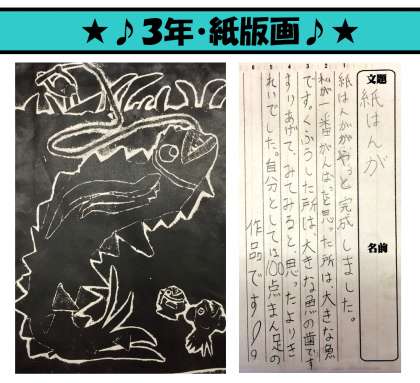 ★♪3年・紙版画♪★
文題
紙はんが
名前
1
2
3
4
5
6
紙はんががやっと完成しました。
私が一番がんばったと思った所は、大きな魚
です。くふうした所は、大きな魚の歯です
すりあげて、みてみると、思ったよりき
れいでした。自分としては100点まん足の
作品です!!